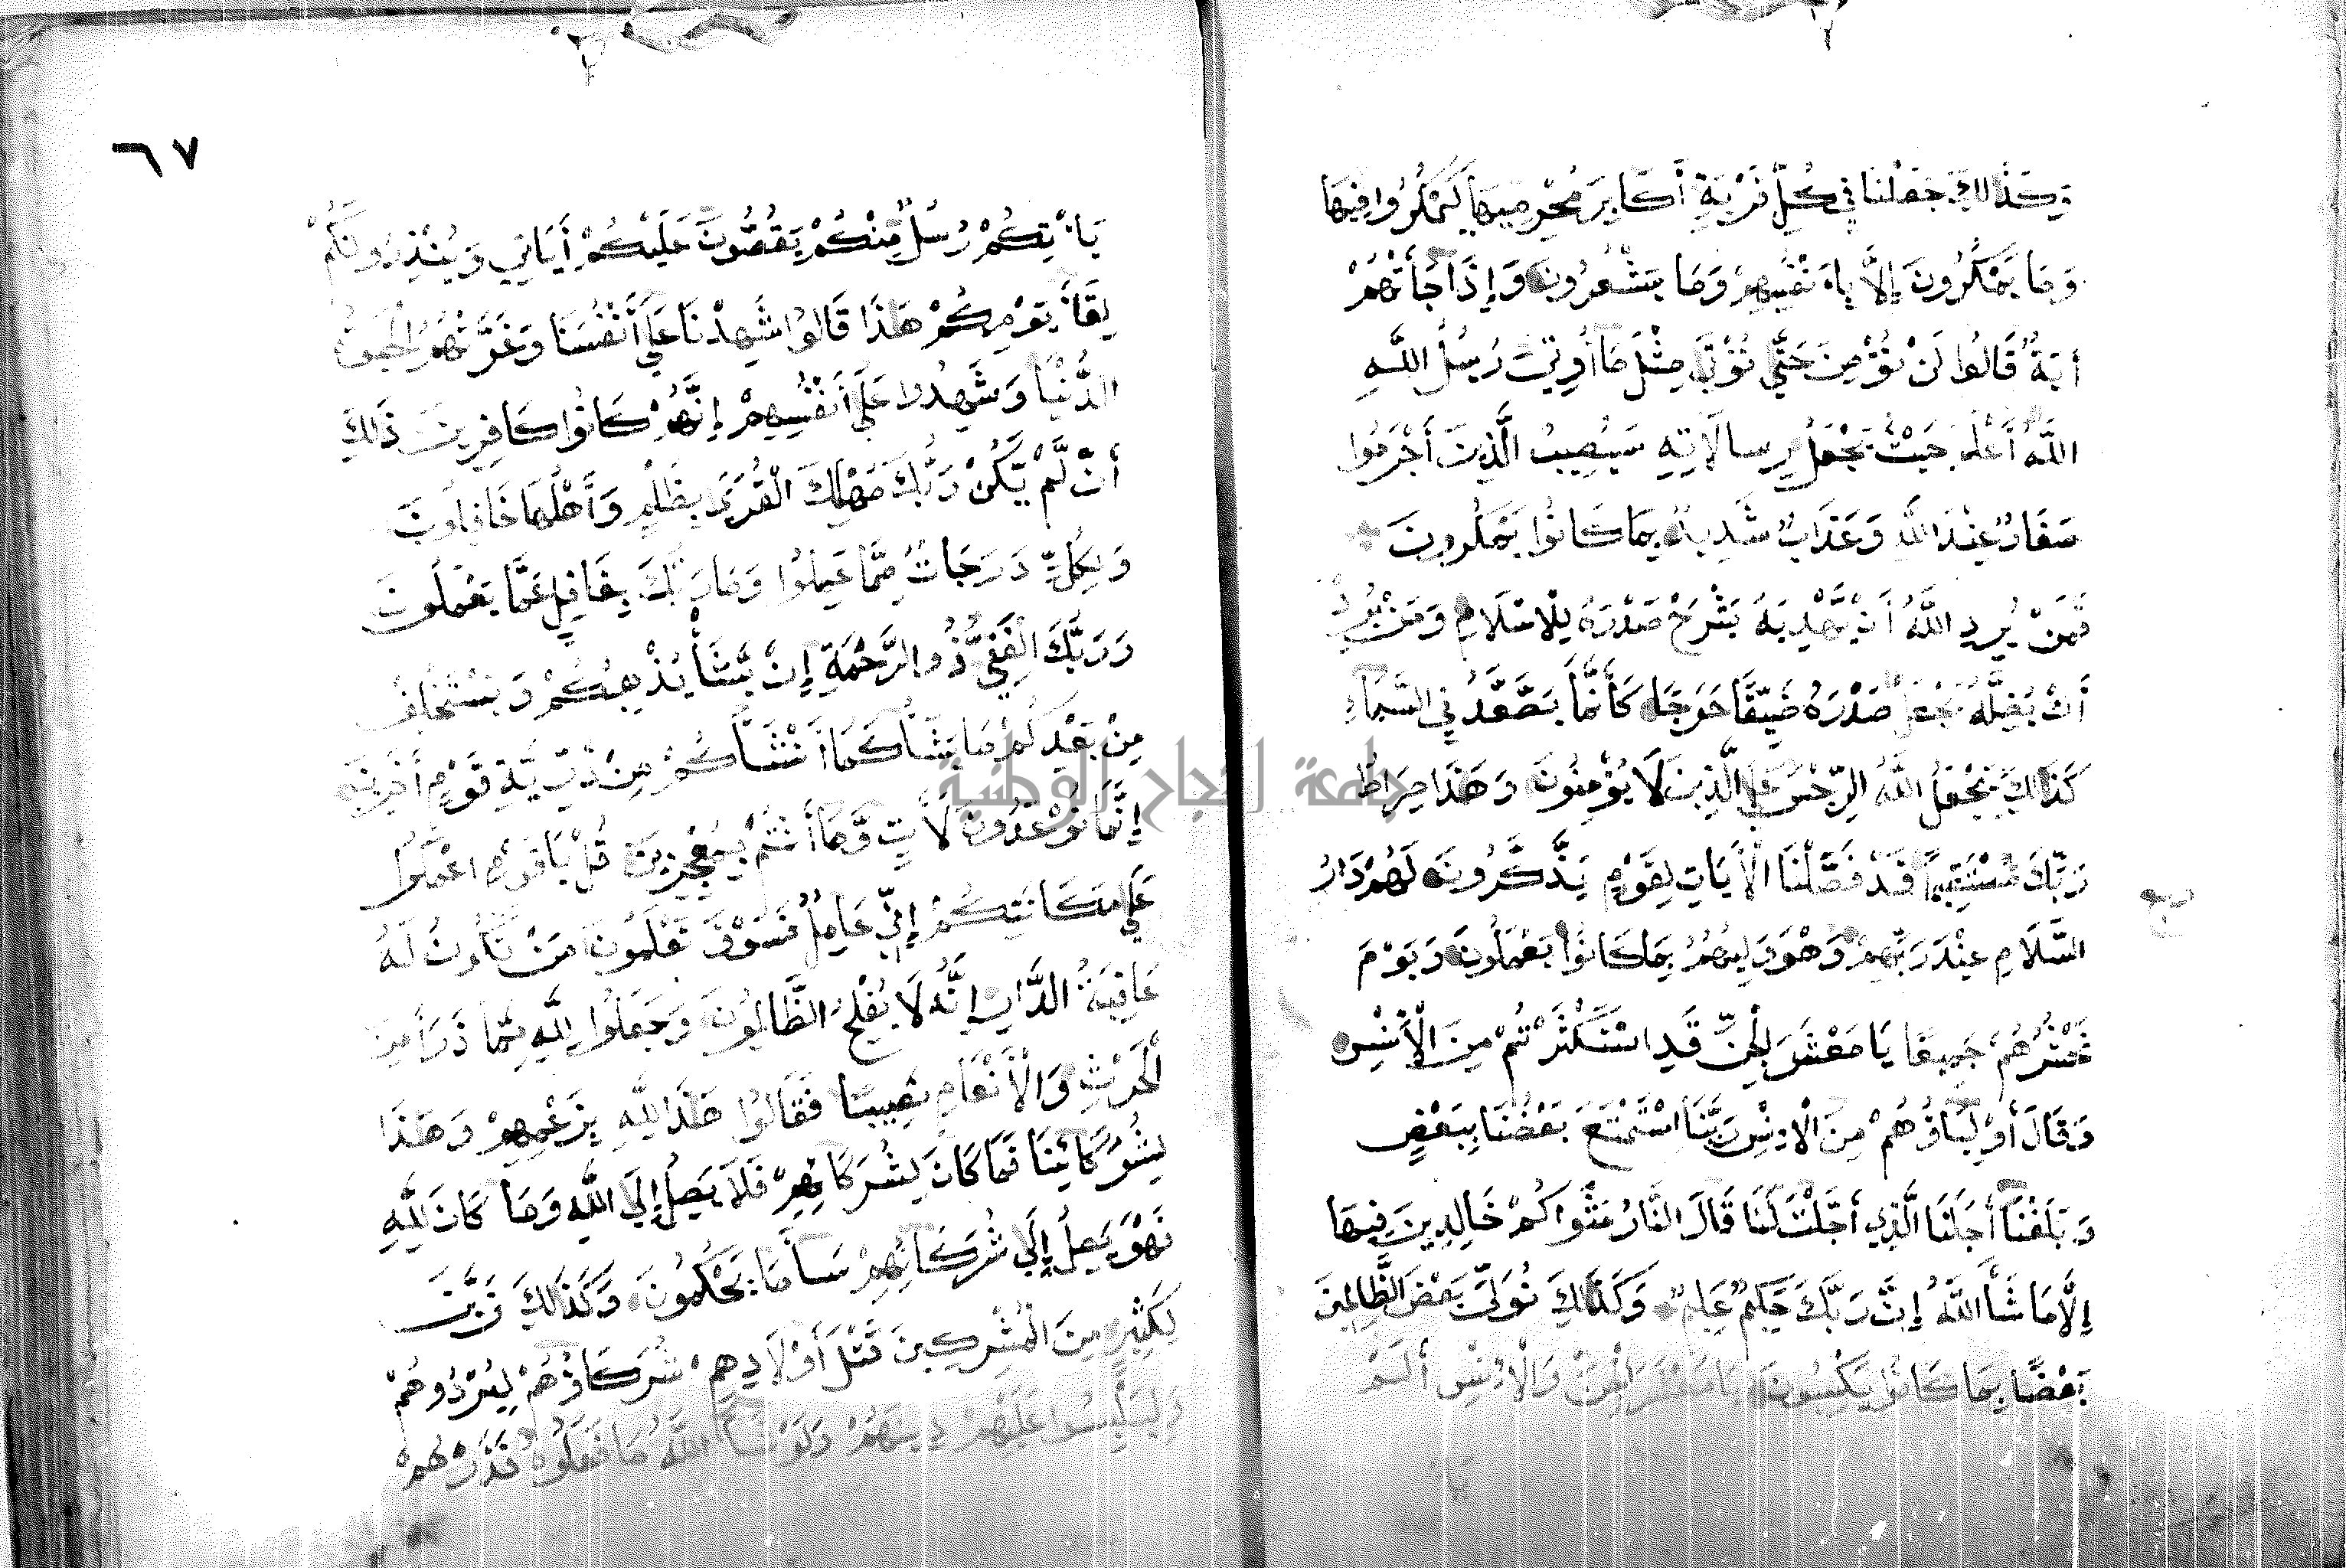 وَكَذَالِكَ جَعَلْنَا فِي كُلِّ قَرْيَةٍ أَكَابِرَ مُجْرِمِيهَا لِيَمْكُرُوا فِيهَا
وَمَا يَمْكُرُونَ إِلَّا بِأَنْفُسِهِمْ وَمَا يَشْعُرُونَ وَإِذَا جَأَتْهُمْ
أيَةٌ قَالُوا لَنْ نُؤْمِنَ حَتَّى نُؤْتَى مِثْلَ مَا أُوتِيَ رُسُلُ اللَّهِ
اللَّهُ أَعْلَمُ حَيْثُ يَجْعَلُ رِسَالَاتِهِ سَيُصِيبُ الَّذِينَ أَجْرَمُوا
صَغَارٌ عِنْدَ اللَّهِ وَعَذَابٌ شَدِيدٌ بِمَا كَانُوا يَمْكُرُونَ
فَمَنْ يُرِدِ اللَّهُ أَنْ يَّهْدِيَهُ يَشْرَحْ صَدْرَهُ لِلْإِسْلَامِ وَمَنْ يُرِدْ
أَنْ يُضِلَّهُ يَجْعَلْ صَدْرَهُ ضَيِّقًا حَرَجًا كَأَنَّمَا يَصَّعَّدُ فِي السَّمَاءِ
كَذَالِكَ يَجْعَلُ اللَّهُ الرِّجْسَ عَلَى الَّذِينَ لَا يُؤْمِنُونَ وَهَذَا صِرَاطُ
رَبِّكَ مُسْتَقِيمًا قَدْ فَصَّلْنَا الْأَيَاتِ لِقَوْمٍ يَذَّكَّرُونَ لَهُمْ دَارُ
السَّلَامِ عِنْدَ رَبِّهِمْ وَهْوَ وَلِيُّهُمْ بِمَا كَانُوا يَعْمَلُونَ وَيَوْمَ
نَحْشُرُهُمْ جَمِيعًا يَا مَعْشَرَ الْجِنِّ قَدِ اسْتَكْثَرْتُمْ مِنَ الْإِنْسِ
وَقَالَ أَوْلِيَاؤُهُمْ مِنَ الْإِنْسِ رَبَّنَا اسْتَمْتَعَ بَعْضُنَا بِبَعْضٍ
وَبَلَغْنَا أَجَلَنَا الَّذِي أَجَّلْتَ لَنَا قَالَ النَّارُ مَثْوَاكُمْ خَالِدِينَ فِيهَا
إِلَّا مَا شَأَ اللَّهُ إِنَّ رَبَّكَ حَكِيمٌ عَلِيمٌ وَكَذَالِكَ نُوَلِّي بَعْضَ الظَّالِمِينَ
بَعْضًا بِمَا كَانُوا يَكْسِبُونَ يَا مَعْشَرَ الْجِنِّ وَالْإِنْسِ أَلَمْ
ربع
٦٧
يَأْتِكُمْ رُسُلٌ مِنْكُمْ يَقُصُّونَ عَلَيْكُمْ أَيَاتِي وَيُنْذِرُونَكُمْ
لِقَأَ يَوْمِكُمْ هَذَا قَالُوا شَهِدْنَا عَلَى أَنْفُسِنَا وَغَرَّتْهُمُ الْحَيَوةُ
الدُّنْيَا وَشَهِدُوا عَلَى أَنْفُسِهِمْ إِنَّهُمْ كَانُوا كَافِرِينَ ذَالِكَ
أَن لَّمْ يَكُنْ رَبُّكَ مُهْلِكَ الْقُرَى بِظُلْمٍ وَأَهْلُهَا غَافِلُونَ
وَلِكُلٍّ دَرَجَاتٌ مِمَّا عَمِلُوا وَمَا رَبُّكَ بِغَافِلٍ عَمَّا يَعْمَلُونَ
وَرَبُّكَ الْغَنِيُّ ذُو الرَّحْمَةِ إِنْ يَّشَأْ يُذْهِبْكُمْ وَيَسْتَخْلِفْ
مِنْ بَعْدِكُمْ مَا يَشَأُ كَمَا أَنْشَأَكُمْ مِنْ ذُرِّيَّةِ قَوْمٍ أَخَرِينَ
إِنَّمَا تُوعَدُونَ لَأَتٍ وَّمَا أَنْتُمْ بِمُعْجِزِينَ قُلْ يَا قَوْمِ اعْمَلُوا
عَلَى مَكَانَتِكُمْ إِنِّي عَامِلٌ فَسَوْفَ تَعْلَمُونَ مَنْ تَكُونُ لَهُ
عَاقِبَةُ الدَّارِ إِنَّهُ لَا يُفْلِحُ الظَّالِمُونَ وَجَعَلُوا لِلَّهِ مِمَّا ذَرَأَ مِنَ
الْحَرْثِ وَالْأَنْعَامِ نَصِيبًا فَقَالُوا هَذَا لِلَّهِ بِزَعْمِهِمْ وَهَذَا
لِشُرَكَائِنَا فَمَا كَانَ لِشُرَكَائِهِمْ فَلَا يَصِلُ إِلَى اللَّهِ وَمَا كَانَ لِلَّهِ
فَهْوَ يَصِلُ إِلَى شُرَكَائِهِمْ سَأَ مَا يَحْكُمُونَ وَكَذَالِكَ زَيَّنَ
لِكَثِيرٍ مِنَ الْمُشْرِكِينَ قَتْلَ أَوْلَادِهِمْ شُرَكَاؤُهُمْ لِيُرْدُوهُمْ
وَلِيَلْبِسُوا عَلَيْهِمْ دِينَهُمْ وَلَوْ شَأَ اللَّهُ مَا فَعَلُوهُ فَذَرْهُمْ
جامعة النجاح الوطنية